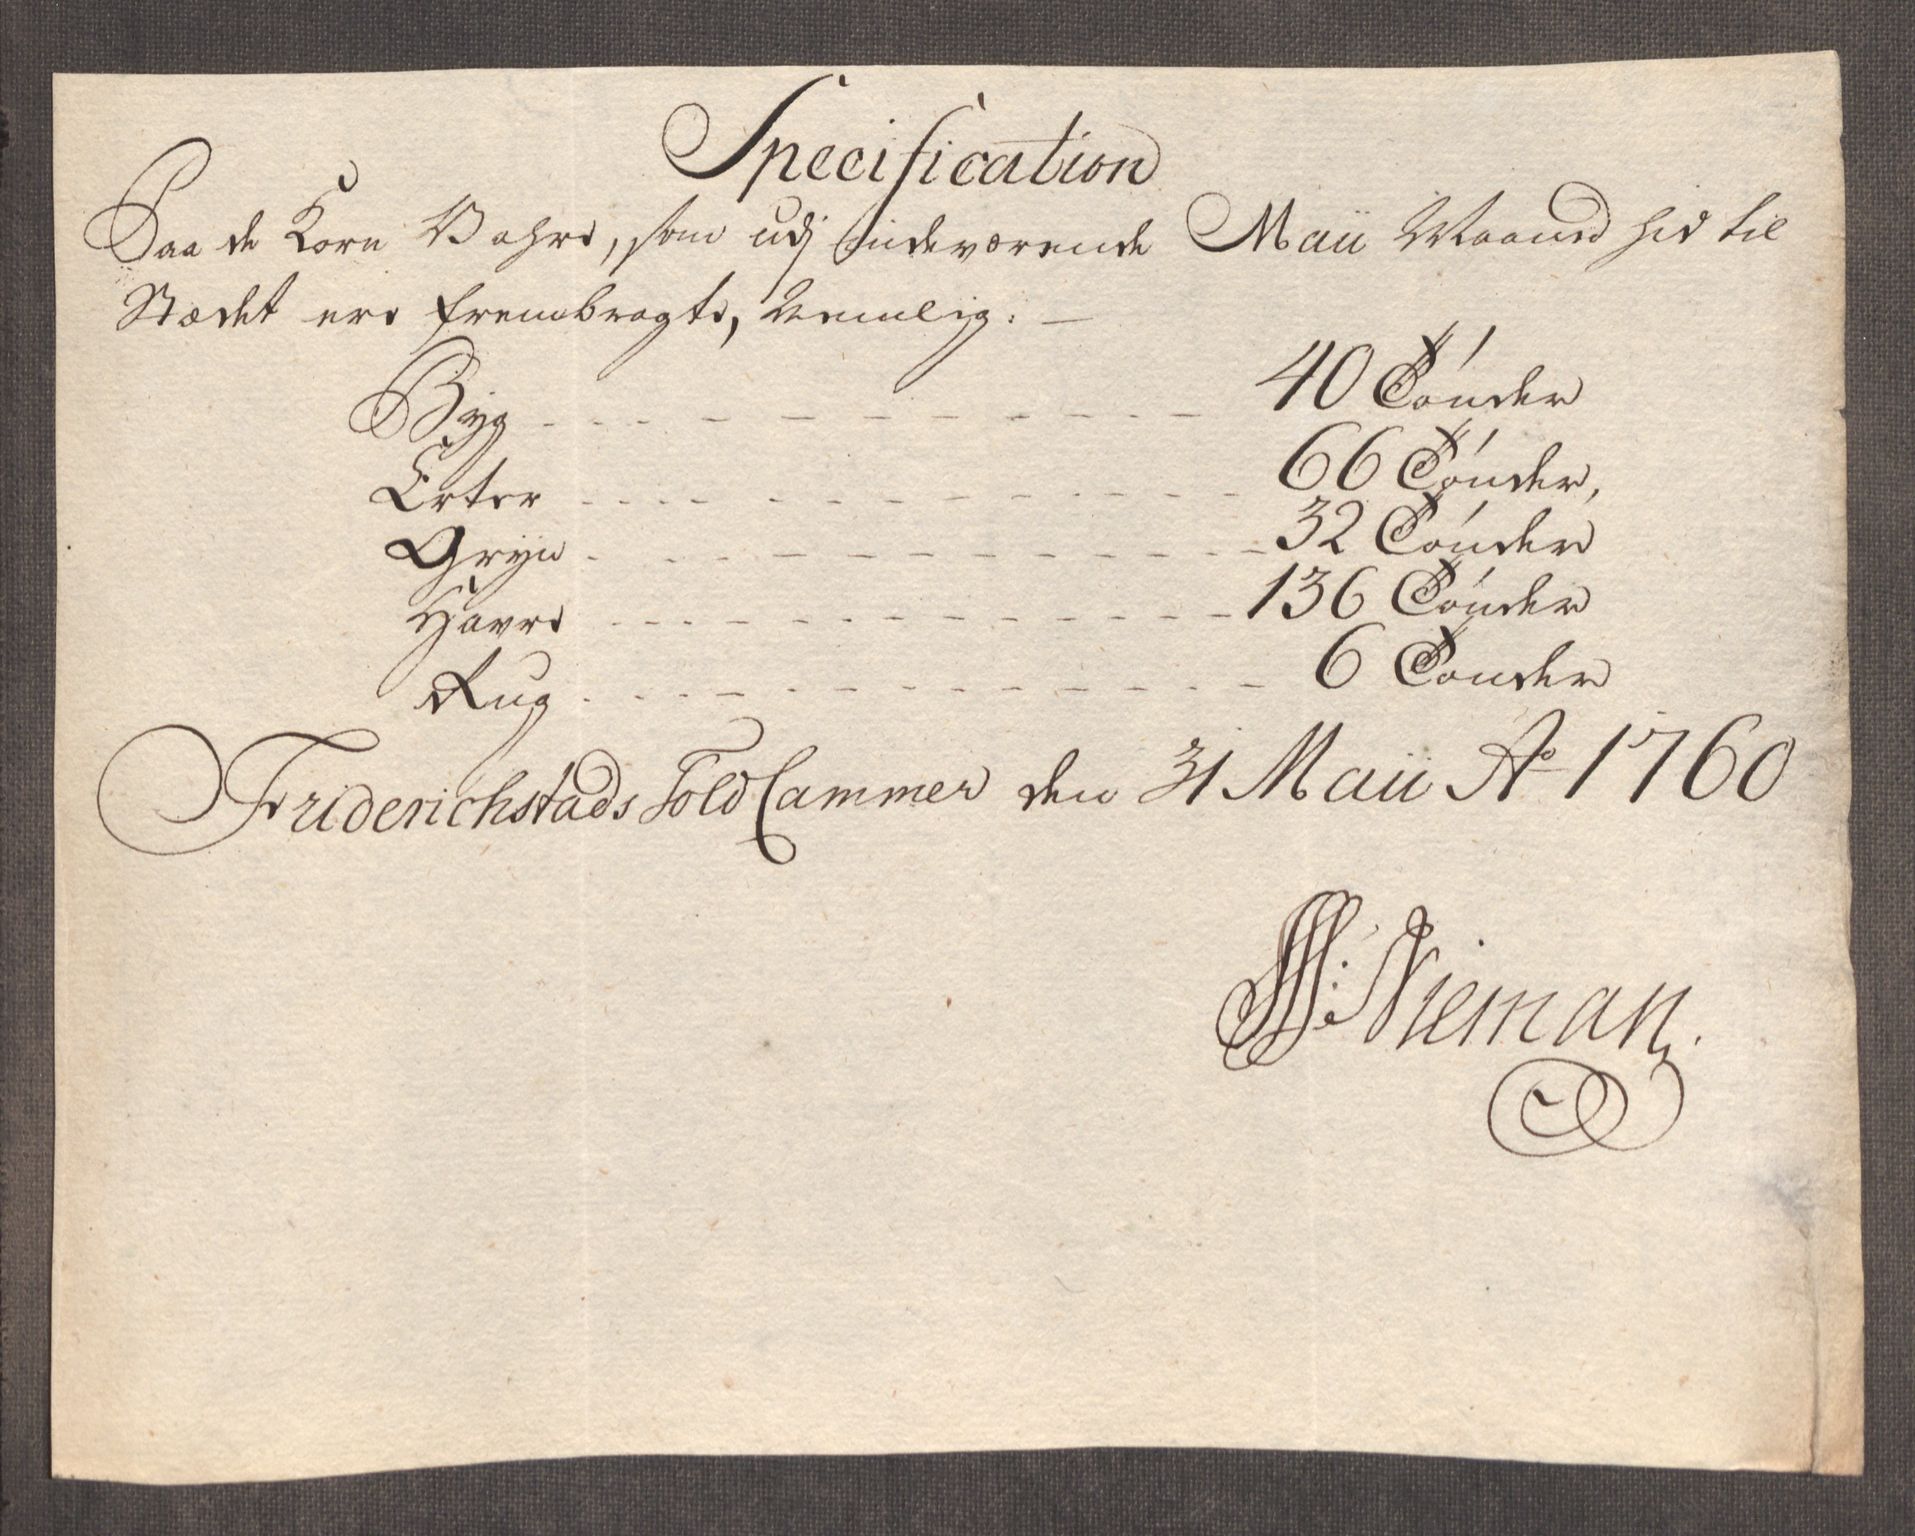 Specification
Paa de Korn Vahre, som udj indeværende Maii Maaned hid til
Stædet ere frembragte, Nemlig:
Byg 40 Tønder
Erter 66 Tønder,
Gryn 32 Tønder
Havre 136 Tønder
Rug 6 Tønder
Friderichstads Told Cammer den 31 Maii Ao 1760
Nieman.